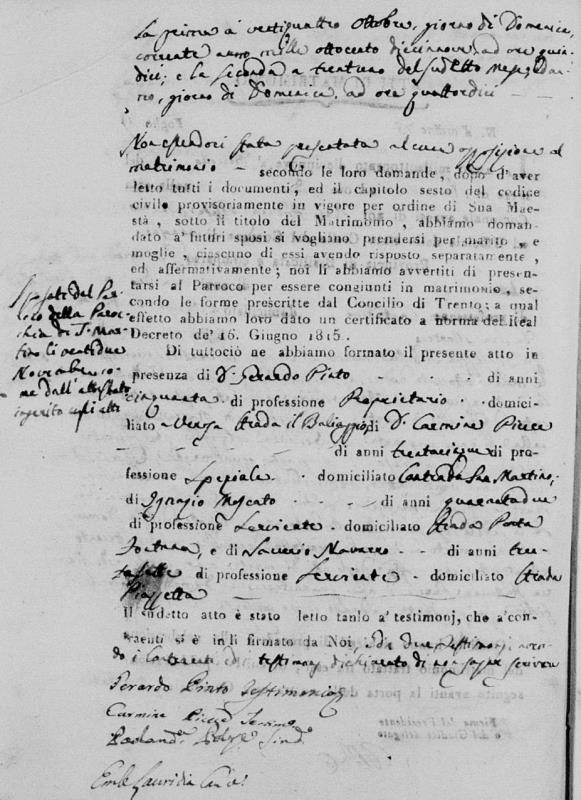 La prima à ventiquattro Ottobre, giorno di Domenica,
corrente anno mille ottocento diecinnove, ad ore quin
dici; e la seconda a trentuno del sudetto mese, ed an
no, giorno di Domenica, ad ore quattordici
Non essendosi stata presentata alcuna opposizione al
matrimonio - secondo le loro domande, dopo d'aver
letto tutti i documenti, ed il capitolo sesto del codice
civile provvisoriamente in vigore per ordine di Sua Mae-
stà, sotto il titolo del Matrimonio, abbiamo doman-
dato a' futuri sposi si vogliano prendersi per marito, e
moglie, ciascuno di essi avendo risposto separatamente,
ed affermativamente; noi li abbiamo avvertiti di presen-
tarsi al Parroco per essere congiunti in matrimonio, se-
condo le forme prescritte dal Concilio di Trento; a qual
effetto abbiamo loro dato un certificato a norma del Real
Decreto de' 16. Giugno 1815.
Sposati dal Par
roco della Paroc
chia di S. Mar
tino li ventidue
Novembre co
me dall'attestato
inserito agli atti
Di tuttociò ne abbiamo formato il presente atto in
presenza di D. Gerardo Pinto di anni
cinquanta di professione Proprietario domici-
liato Strada il di D. Carmine
di anni trentacinque di pro-
fessione Speziale domiciliato Contrada San Martino;
di Ignazio Moscato di anni quarantadue
di professione Serviente domiciliato Strada Porta
, e di Saverio Navarro di anni tren
tasette di professione Serviente domiciliato Strada
Piazzetta
Il sudetto atto è stato letto tanto a' testimonj, che a' con-
traenti si è indi firmato da Noi, due testimonj, aven
do i Contraenti ed testimonj dichiarato di non saper scrivere
Gerardo Pinto Testimonio
Carmine